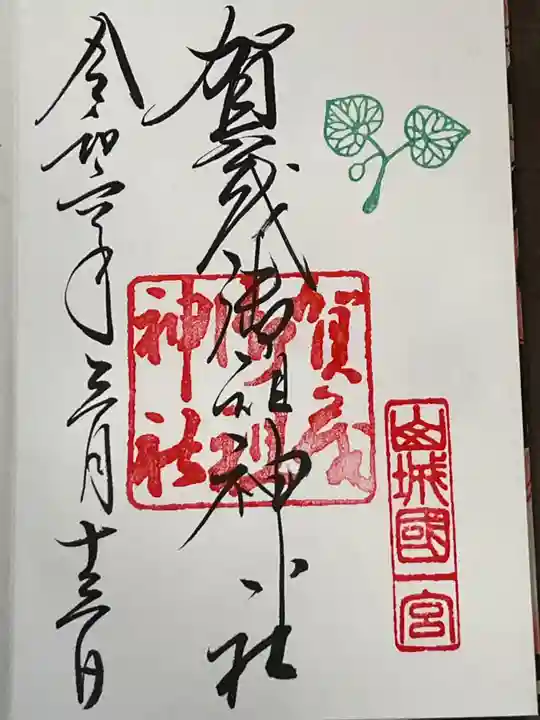 山城國一宮
賀茂御祖神社
賀茂御祖神社
令和六年三月十三日